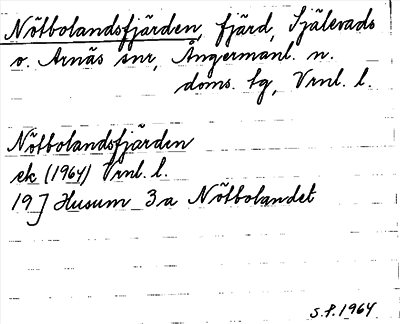 Nötbolandsfjärden, fjärd, Själevads
o. Arnäs snr, Ångermanl. n.
doms. tg, Vrnl. l.
Nötbolandsfjärden
ek (1964) Vrnl. l.
19J Husum 3a Nötbolandet
S.P. 1964